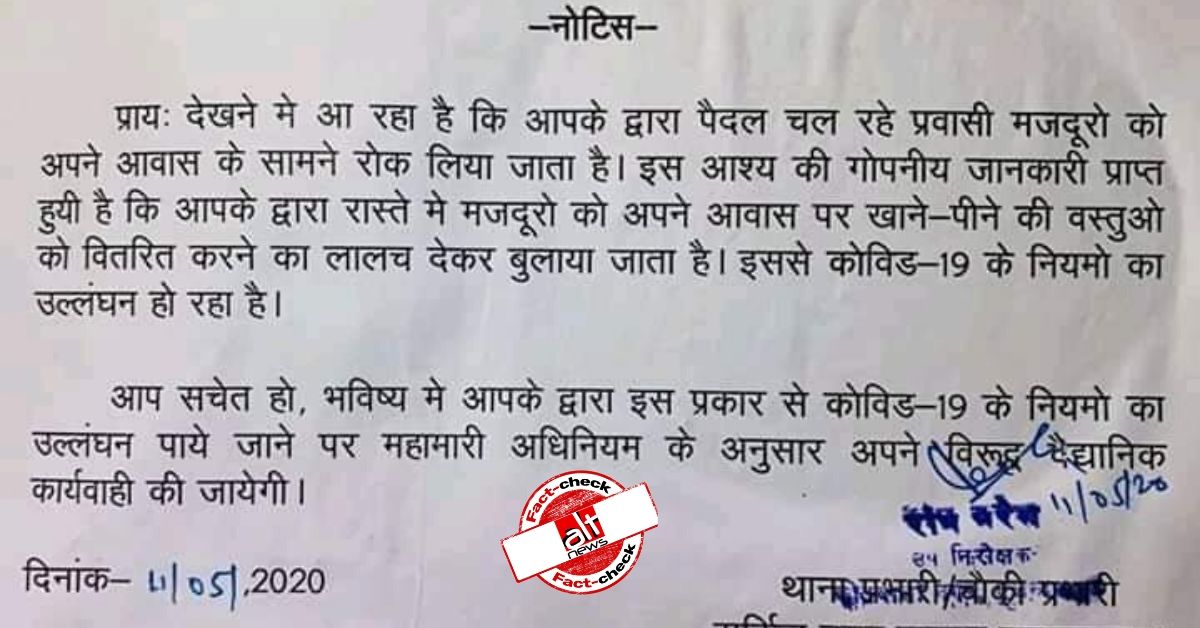 –नोटिस–
प्रायः देखने मे आ रहा है कि आपके द्वारा पैदल चल रहे प्रवासी मजदूरो को
अपने आवास के सामने रोक लिया जाता है। इस आश्य की गोपनीय जानकारी प्राप्त
हुयी है कि आपके द्वारा रास्ते मे मजदूरो को अपने आवास पर खाने–पीने की वस्तुओ
को वितरित करने का लालच देकर बुलाया जाता है। इससे कोविड–19 के नियमो का
उल्लंघन हो रहा है।
आप सचेत हो, भविष्य मे आपके द्वारा इस प्रकार से कोविड–19 के नियमो का
उल्लंघन पाये जाने पर महामारी अधिनियम के अनुसार अपने विरूद्व वैद्यानिक
कार्यवाही की जायेगी।
11/05/20
Fact-check
alt
news
Fact-check
उप निरीक्षक
दिनांक– 11/05/,2020
थाना प्रभारी/चौकी प्रभारी